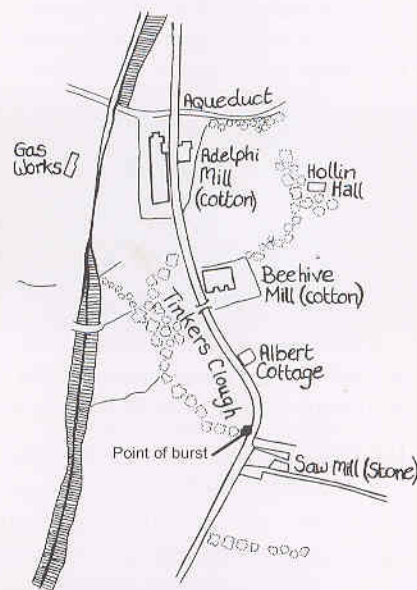 Aqueduct
Gas
Works
Adelphi
Mill
(cotton)
Hollin
Hall
Beehive
Mill (cotton)
Tinkers Clough
Albert
Cottage
Point of burst
Saw Mill (Stone)